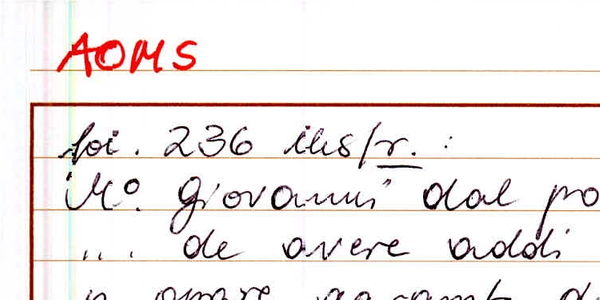 AOMS
foi. 236 ius/r. :
Mo. Giovanni dal po
... de avere addi